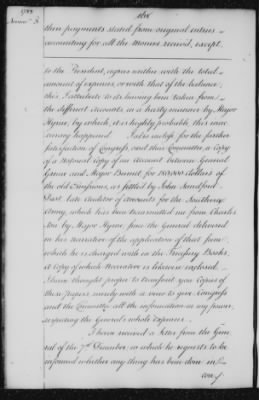 1783
their payments stated from original entries
accounting for all the monies received, except
to the President, agrees neither with the total
amount of expences, or with that of the balance,
this I attribute to its having been taken from
the different accounts, in a hasty manner by Major
Hyrne, by which, it is highly probable, this inac-
curacy happened I also enclose for the further
satisfaction of Congress, and their Committee, a Copy
of a Notarial Copy of an Account between General
Greene and Major Burnet for 180,000 dollars of
the old Emissions, as settled by John Sandford
Dart late Auditor of Accounts for the Southern
Army, which has been transmitted me from Charles
Ton by Major Hyrne, since the General delivered
in his narrative of the application of that sum,
which he is charged with in the Treasury Books,
a Copy of which Narrative is likewise enclosed
I have thought proper to transmit you Copies of
these papers merely with a view to give Congress
and the Committee all the information in my power,
respecting the General's whole expences.
I have received a letter from the Gene-
ral of the 7th December, in which he requests to be
informed whether any thing has been done in